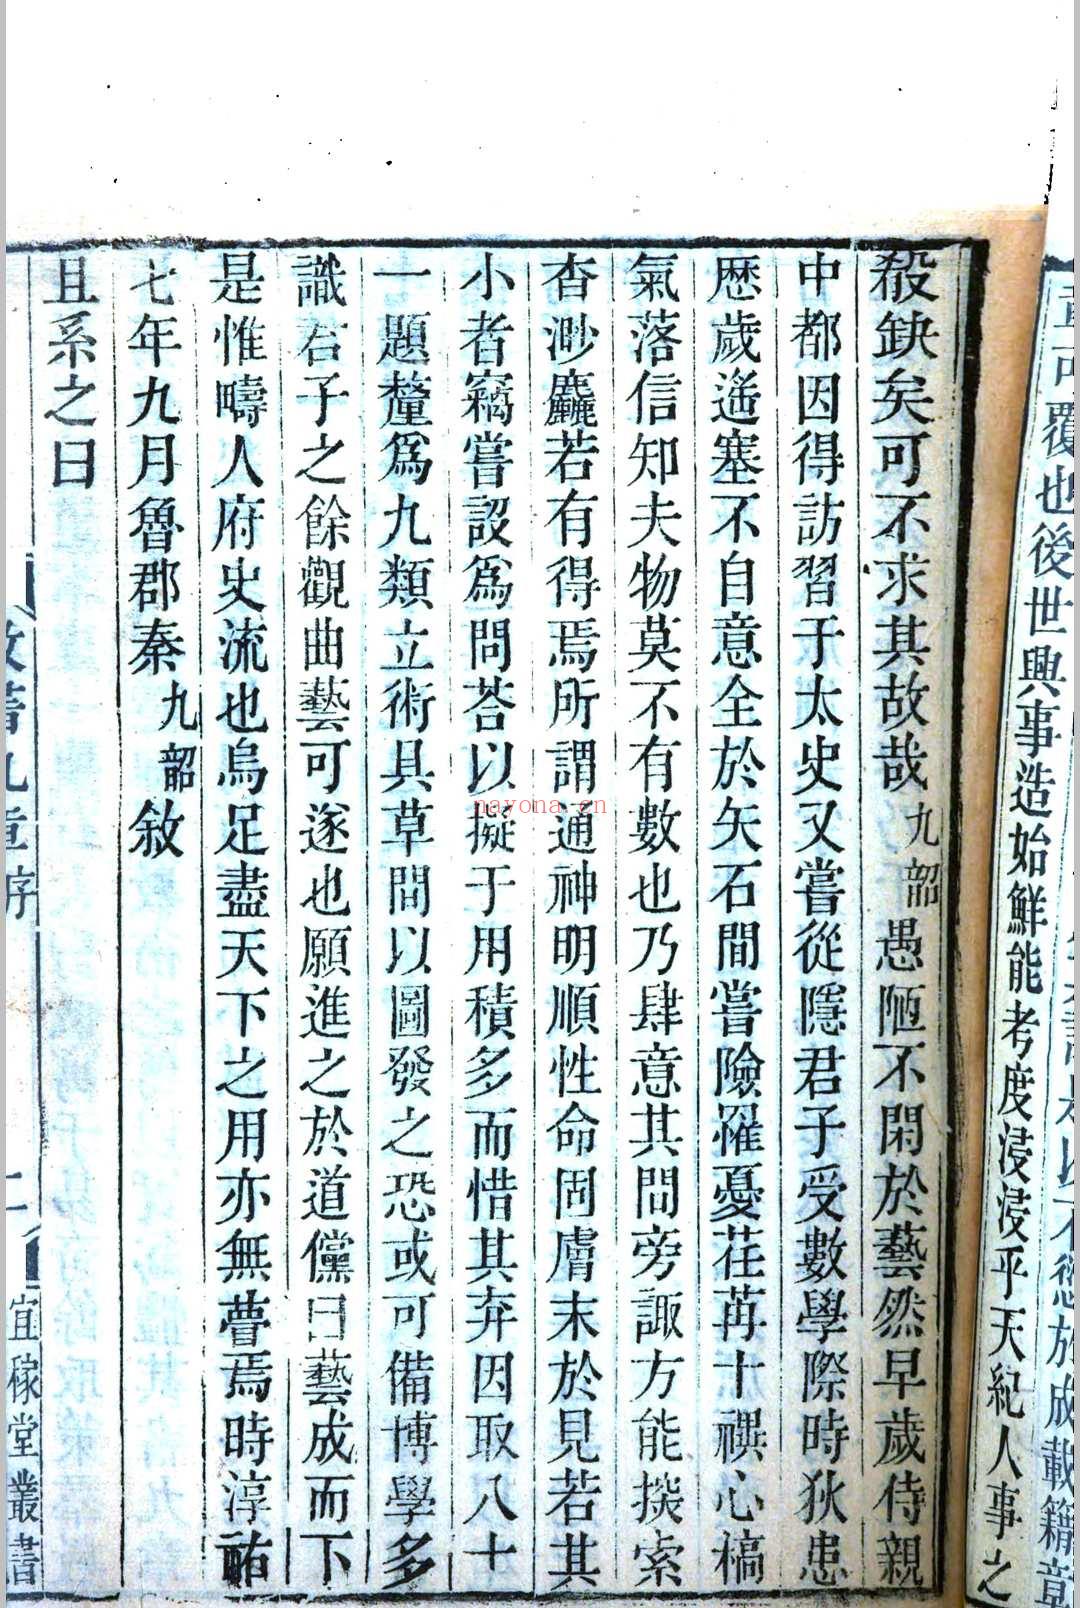 覆也後世興事造始鮮能考度浸浸乎天紀人事之
殽缺矣可不求其故哉九韶愚陋不閑於藝然早歲侍親
中都因得訪習于太史又嘗從隱君子受數學際時狄患
歷歲遙塞不自意全於矢石間嘗險罹憂荏苒十禩心槁
氣落信知夫物莫不有數也乃肆意其間旁諏方能探索
杳渺麤若有得焉所謂通神明順性命固膚末於見若其
小者竊嘗設爲問荅以擬于用積多而惜其弃因取八十
一題釐爲九類立術具草間以圖發之恐或可備博學多
識君子之餘觀曲藝可遂也願進之於道儻曰藝成而下
是惟疇人府史流也烏足盡天下之用亦無瞢焉時淳祐
七年九月魯郡秦九韶敘
且系之曰
數書九章序
二
宜稼堂叢書
nayona.cn